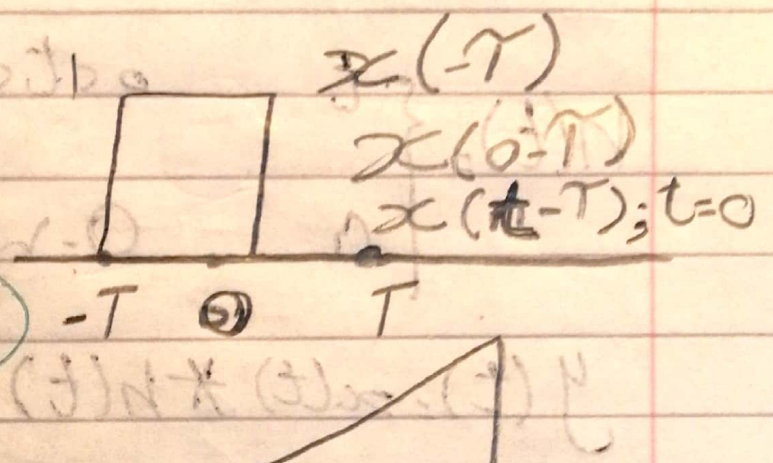 x(-T)
x(0-T)
x(t-T); t=0
-T 0 T